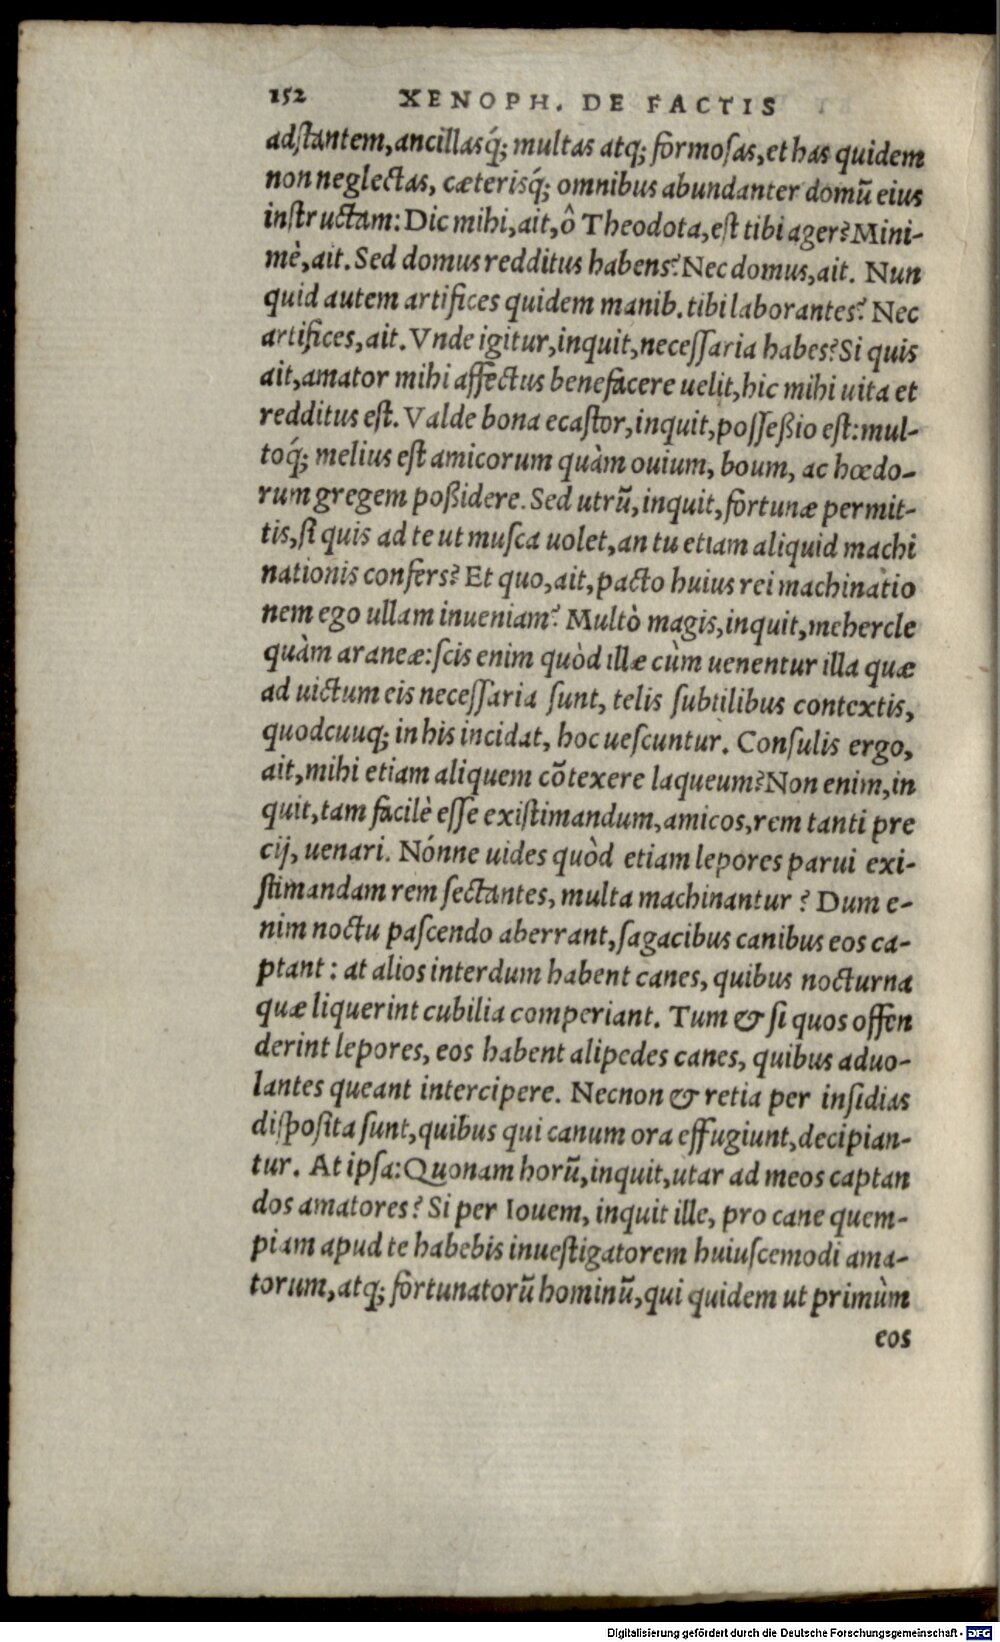 152 XENOPH. DE FACTIS
adſtantem, ancillasq́; multas atq; formoſas, et has quidem
non neglectas, cæterisq́; omnibus abundanter domū eius
inſtructam: Dic mihi, ait, ô Theodota, eſt tibi ager? Mini-
mè, ait. Sed domus redditus habens? Nec domus, ait. Nun
quid autem artifices quidem manib. tibi laborantes? Nec
artifices, ait. Vnde igitur, inquit, neceſſaria habes? Si quis
ait, amator mihi affectus benefacere uelit, hic mihi uita et
redditus eſt. Valde bona ecaſtor, inquit, poſſeßio eſt: mul-
toq́; melius eſt amicorum quàm ouium, boum, ac hœdo-
rum gregem poßidere. Sed utrū, inquit, fortunæ permit-
tis, ſi quis ad te ut muſca uolet, an tu etiam aliquid machi
nationis confers? Et quo, ait, pacto huius rei machinatio
nem ego ullam inueniam? Multò magis, inquit, mehercle
quàm araneæ: ſcis enim quòd illæ cùm uenentur illa quæ
ad uictum eis neceſſaria ſunt, telis ſubtilibus contextis,
quodcuuq; in his incidat, hoc ueſcuntur. Conſulis ergo,
ait, mihi etiam aliquem cōtexere laqueum? Non enim, in
quit, tam facilè eſſe exiſtimandum, amicos, rem tanti pre
cij, uenari. Nónne uides quòd etiam lepores parui exi-
ſtimandam rem ſectantes, multa machinantur? Dum e-
nim noctu paſcendo aberrant, ſagacibus canibus eos ca-
ptant: at alios interdum habent canes, quibus nocturna
quæ liquerint cubilia comperiant. Tum & ſi quos offen
derint lepores, eos habent alipedes canes, quibus aduo-
lantes queant intercipere. Necnon & retia per inſidias
diſpoſita ſunt, quibus qui canum ora effugiunt, decipian-
tur. At ipſa: Quonam horū, inquit, utar ad meos captan
dos amatores? Si per Iouem, inquit ille, pro cane quem-
piam apud te habebis inueſtigatorem huiuſcemodi ama-
torum, atq; fortunatorū hominū, qui quidem ut primùm
eos
Digitalisierung gefördert durch die Deutsche Forschungsgemeinschaft - DFG